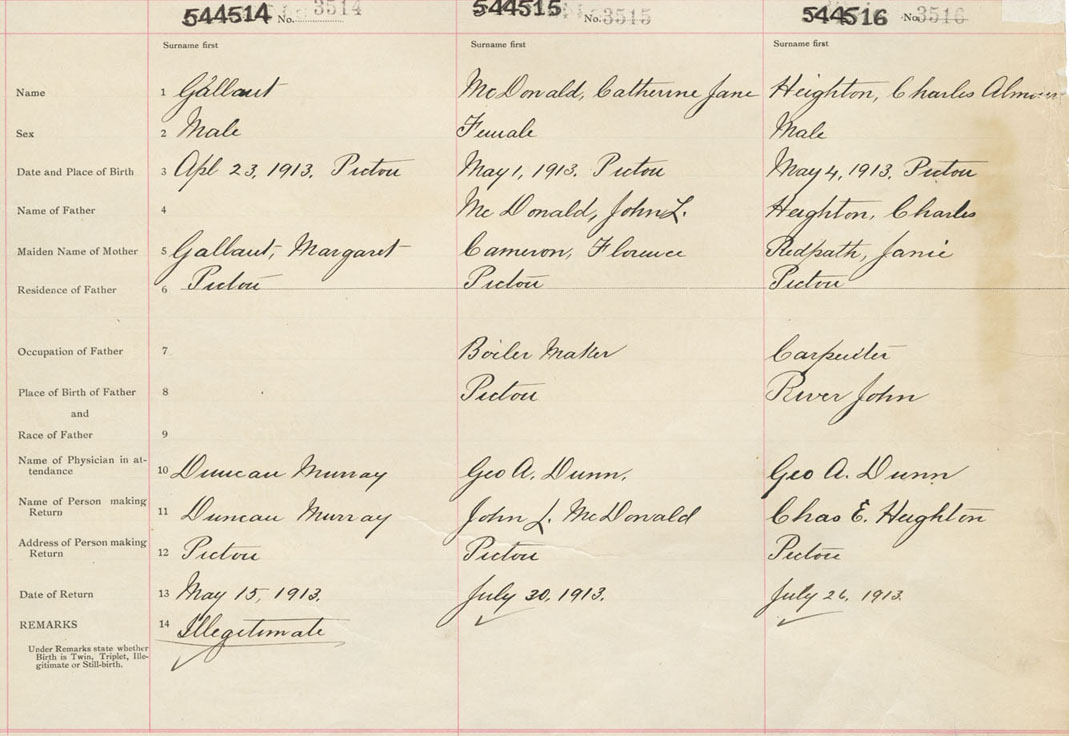 544514 No. 3514 544515 No. 3515 544516 No. 3516
Surname first Surname first Surname first
Name 1 Gallant McDonald, Catherine Jane Heighton, Charles
Sex 2 Male Female Male
Date and Place of Birth 3 Apl 23, 1913. Pictou May 1, 1913. Pictou May 4, 1913. Pictou
Name of Father 4 Mc Donald, John L. Heighton, Charles
Maiden Name of Mother 5 Gallant, Margaret Cameron, Florence Redpath, Janie
Residence of Father 6 Pictou Pictou Pictou
Occupation of Father 7 Boiler Maker Carpenter
Place of Birth of Father 8 Pictou River John
and
Race of Father 9
Name of Physician in at-
tendance 10 Duncan Murray Geo A. Dunn. Geo A. Dunn
Name of Person making
Return 11 Duncan Murray John L. McDonald Chas E. Heighton
Address of Person making
Return 12 Pictou Pictou Pictou
Date of Return 13 May 15, 1913. July 30, 1913. July 26, 1913.
REMARKS 14 Illegitimate
Under Remarks state whether
Birth is Twin, Triplet, Ille-
gitimate or Still-birth.